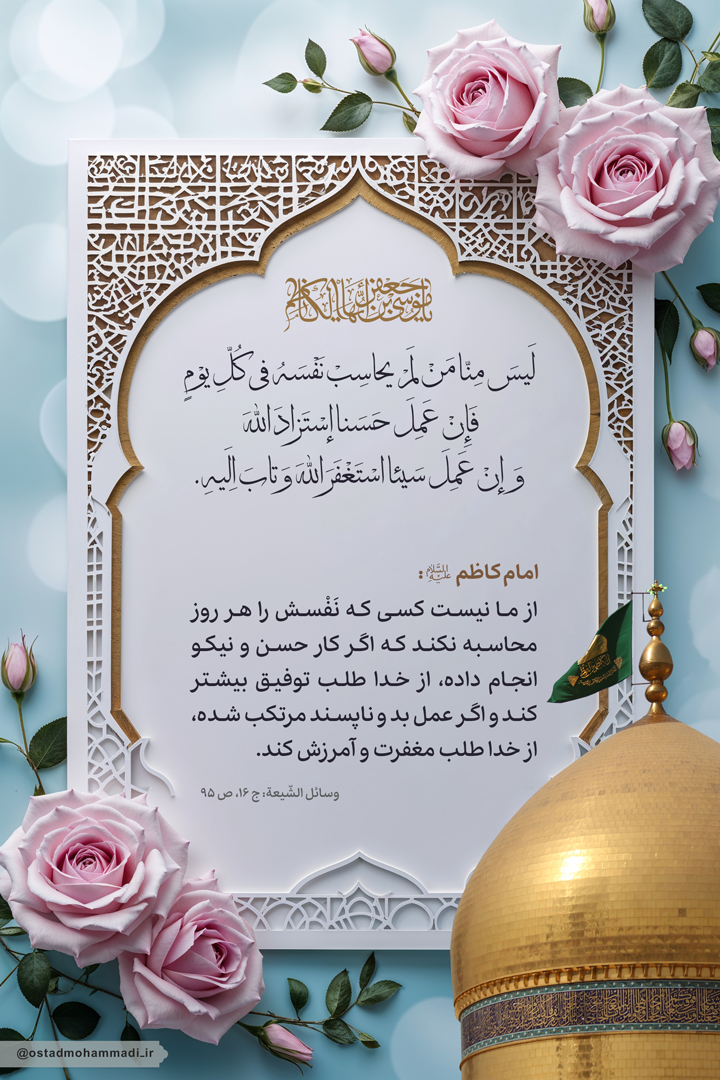 يا موسى بن جعفر أيها الكاظم
لَيسَ مِنّا مَنْ لَمْ يحاسِبْ نَفْسَهُ في كُلِّ يوْمٍ
فَإِنْ عَمِلَ حَسَنا إسْتَزادَ اللهَ
وَ إنْ عَمِلَ سَيئا اسْتَغْفَرَ اللهَ وَ تابَ اِلَيهِ.
امام کاظم علیه السلام :
از مـا نیست کسی که نَفْسش را هر روز
محاسبه نکند که اگر کار حسن و نیکو
انجام داده، از خدا طلب توفیق بیشتر
کند و اگر عمل بد و ناپسند مرتکب شده،
از خدا طلب مغفرت و آمرزش کند.
وسائل الشّیعة: ج ۱۶، ص ۹۵
@ostadmohammadi_ir